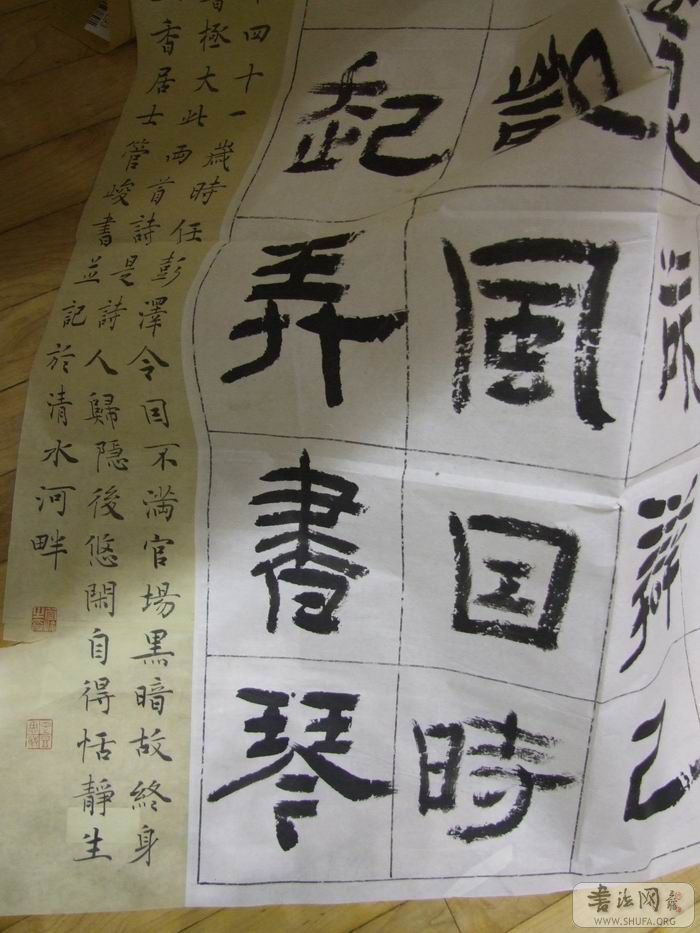 己
凱風因時
起弄書琴
四十一歲時任彭澤令因不滿官場黑暗故終身
極大此兩首詩是詩人歸隱後悠閑自得恬靜生
香居士管峻書並記於清水河畔
书法网
WWW.SHUFA.ORG